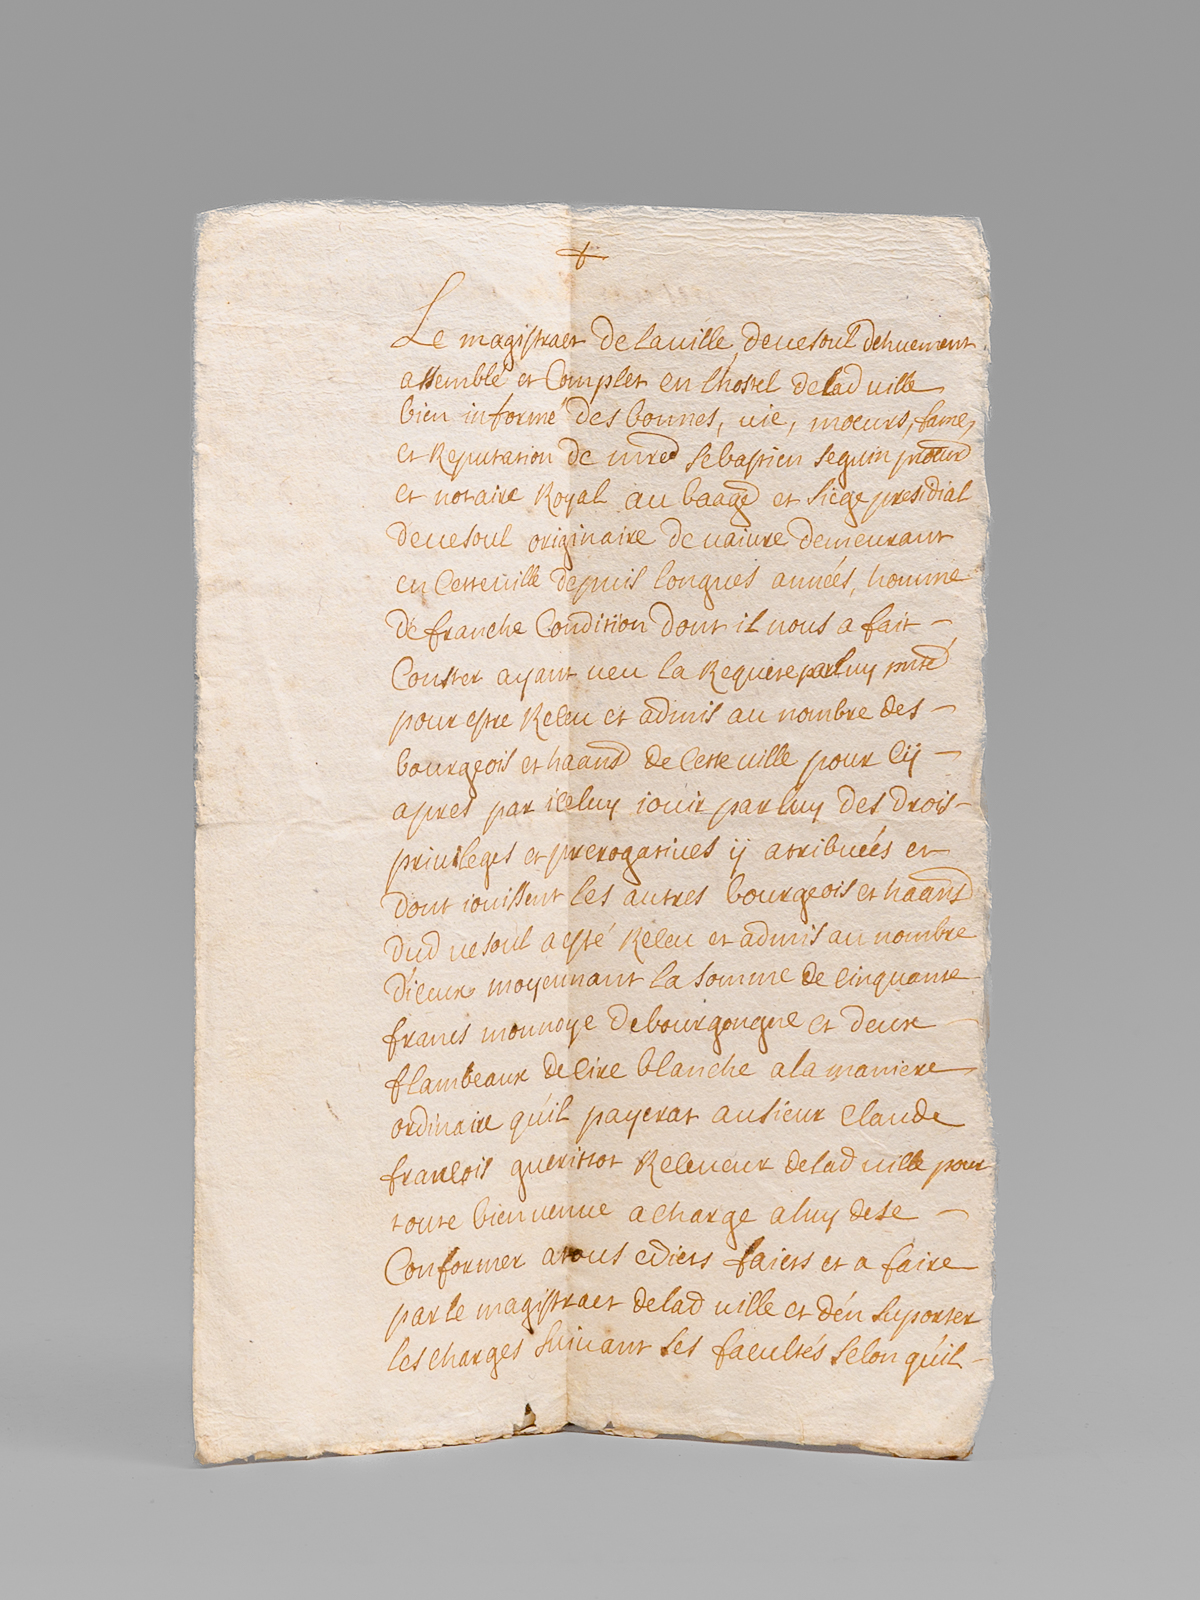 Le magistraet de la ville de uesoul dehuement
assemblé et Complet en l'hostel delad ville
bien informé des bonnes, uie, moeurs, fame,
et Reputation de me sebastien seguin
et notaire Royal au baage et siege presidial
de uesoul originaire de uaiure demeurant
en Cette uille depuis longues années, homme
de franche Condition dont il nous a fait
Conster ayant ueu la Requeste par luy pnte
pour estre Releu et admis au nombre des
bourgeois et haans de Cette uille pour Cij
apres par iceluy iouir par luy des drois
priuileges et prerogatiues ij atribueés et
dont iouissent les autres bourgeois et haans
dud uesoul a esté Releu et admis au nombre
d'iceux moyennant la somme de Cinquante
francs monnoye de bourgongne et deux
flambeaux de Cire blanche a la maniere
ordinaire qu'il payerat au sieur Claude
françois guerittot Releueur delad uille pour
toute bien uenue a charge a luy de se
Conformer a tous edicts faicts et a faire
par le magistraet delad uille et d'en suporter
les charges suiuant ses facultés selon qu'il